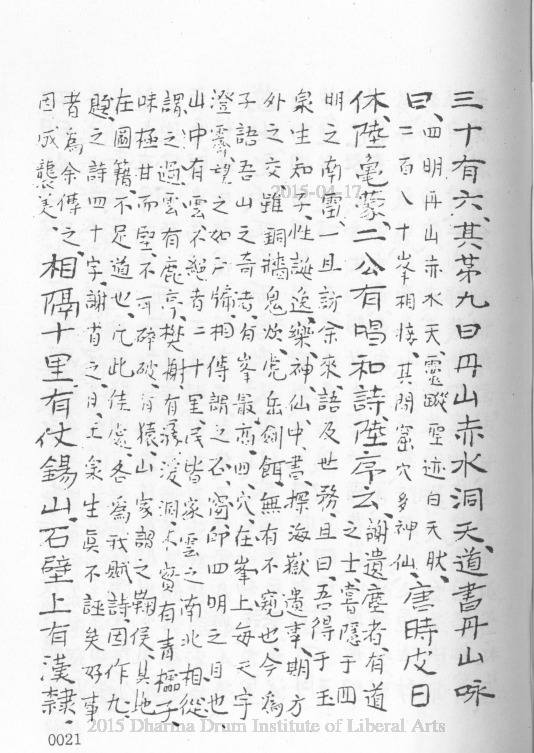 三十有六、其第九曰丹山赤水洞天、道書丹山咏
曰、四明丹山赤水天、靈蹤聖迹自天然、二百八十峯相接、其間窟穴多神仙、唐時皮日
休、陸龜蒙、二公有唱和詩、陸序云、謝遺塵者、有道之士、嘗隱于四
明之南雷、一旦訪余來、語及世務、且曰、吾得于玉
泉生知子性誕逸樂、神仙中書、探海嶽遺事、期方
外之交、雖銅牆鬼炊、虎岳劍餌、無有不窺也、今為
子語吾山之奇者、有峯最高、四穴在峯上、每天宇
澄霽、望之如戶牖、相傳謂之石窗、即四明之目也、
山中有雲不絕者二十里、民皆家雲之南北、相從、
謂之過雲、有鹿亭、樊榭、有潺湲洞、木實有青櫺子、
味極甘而堅、不可碎破、有猿山家謂之鞠侯、其地
在圖籍、不足道也、凡此佳處、各為我賦詩、因作九
題之詩四十字、謝省之曰、玉泉生真不誣矣、好事
者為余傳之、因成襲美、相隔十里、有仗錫山、石壁上有漢隸、
2015-04-17
0021
2015 Dharma Drum Institute of Liberal Arts